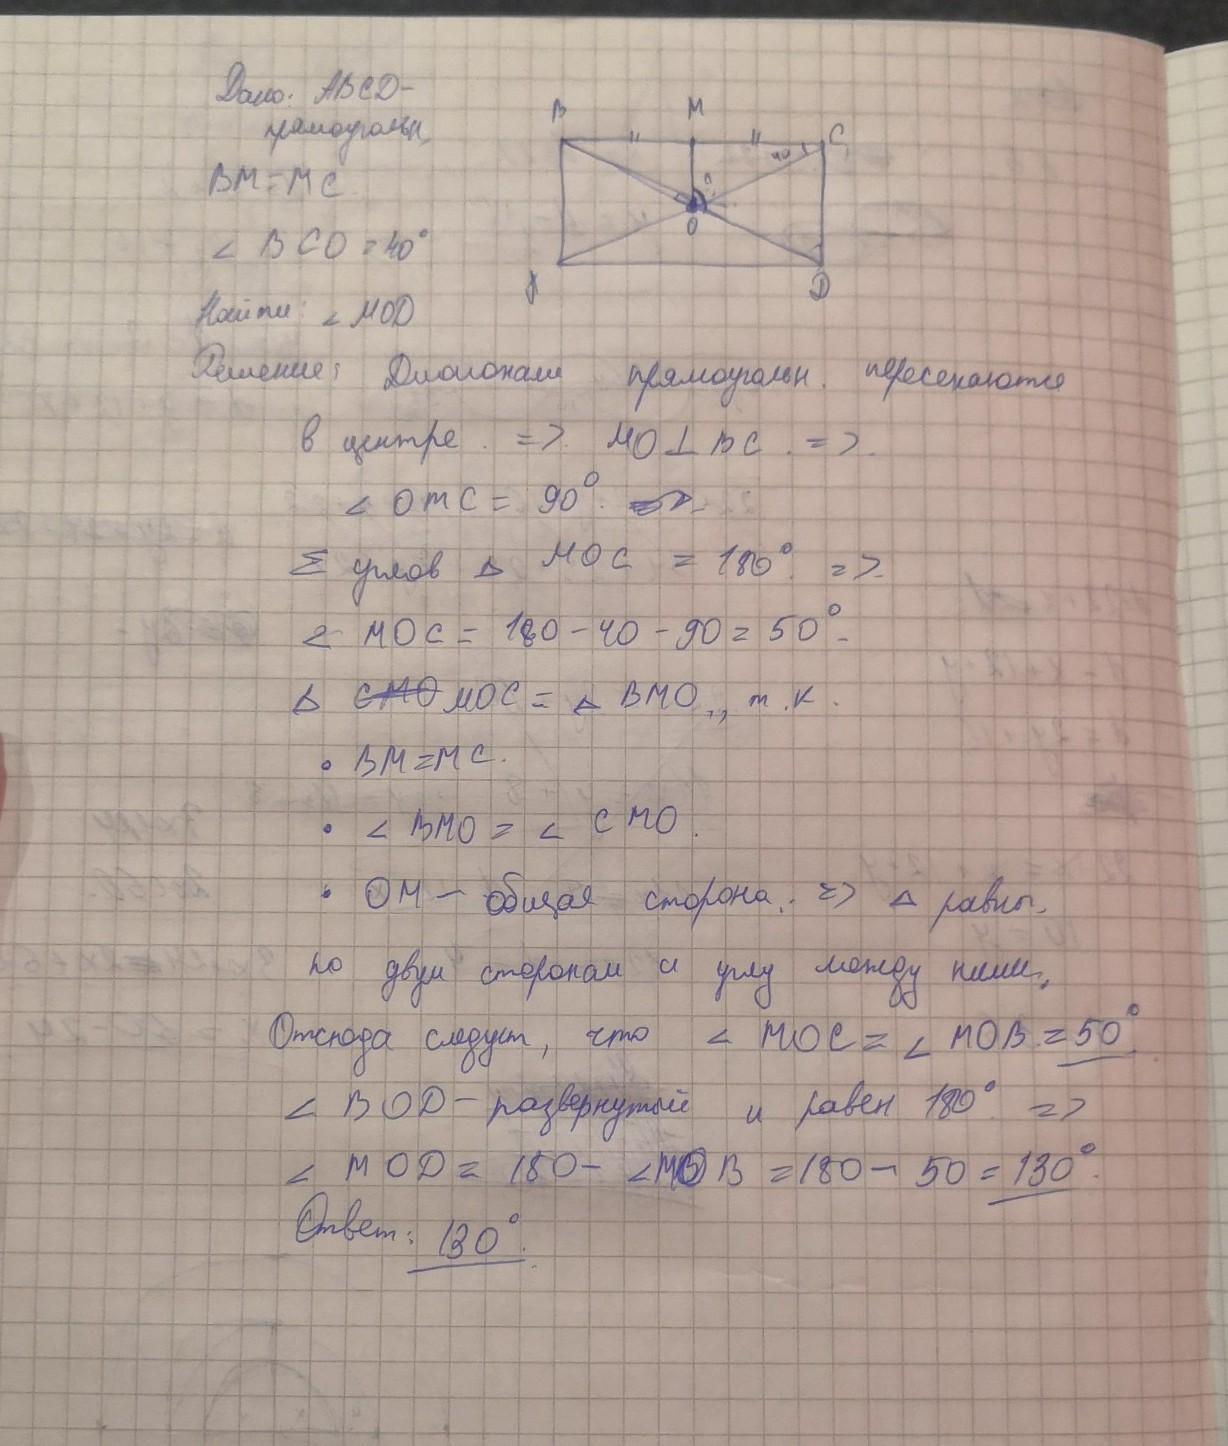 Дано: ABCD-
прямоугольн.
BM=MC
∠ BCO = 40°
Найти: ∠ MOD
B M C
40
O
D
Решение: Диагонали прямоугольн. пересекаются
в центре. => MO⊥BC. =>.
∠ OMC = 90°.
Σ углов Δ MOC = 180° =>.
∠ MOC = 180-40-90 = 50°.
Δ MOC = Δ BMO, т.к.
• BM=MC.
• ∠ BMO = ∠ CMO.
• OM - общая сторона. => Δ равны.
по двум сторонам и углу между ними.
Отсюда следует, что ∠ MOC = ∠ MOB = 50°.
∠ BOD - развернутый и равен 180° =>
∠ MOD = 180 - ∠MOB = 180 - 50 = 130°.
Ответ: 130°.